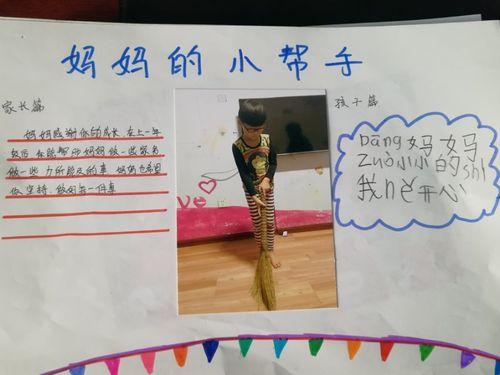 妈妈的小帮手
家长篇
妈妈感谢你的成长 在上一年
级后 你能帮助妈妈做一些家务
做一些 力所能及的事 妈妈也希望
你 坚持 做好每一件事
孩子篇
Dāng妈妈
Zuò小小的shì
我hě开心